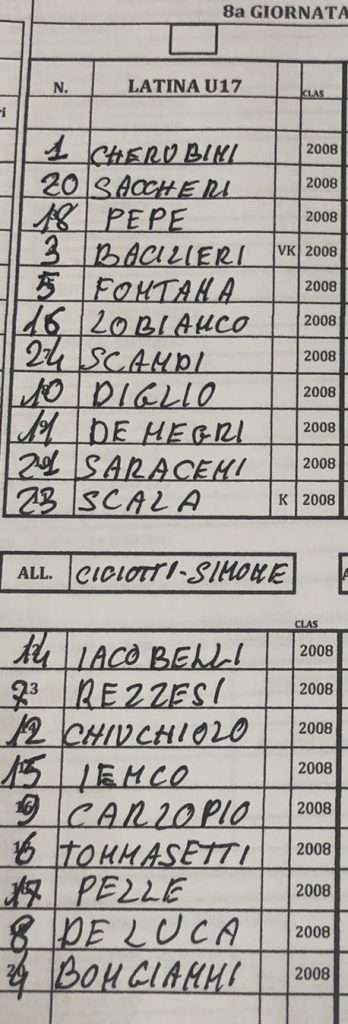 8a GIORNATA
N. LATINA U17 CLAS
1 CHERUBINI 2008
20 SACCHERI 2008
18 PEPE 2008
3 BACILIERI VK 2008
5 FONTANA 2008
16 LOBIANCO 2008
24 SCANDI 2008
10 DIGLIO 2008
11 DE NEGRI 2008
21 SARACENI 2008
23 SCALA K 2008
ALL. CICIOTTI-SIMONE
CLAS
14 IACOBELLI 2008
REZZESI 2008
12 CHIUCHIOLO 2008
15 IENCO 2008
9 CARLOPIO 2008
6 TOMMASETTI 2008
17 PELLE 2008
8 DE LUCA 2008
BONGIANNI 2008